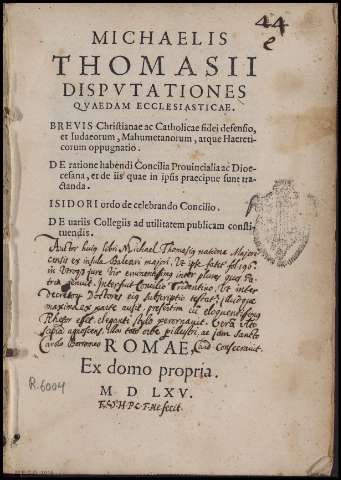 44
e
MICHAELIS
THOMASII
DISPVTATIONES
QVAEDAM ECCLESIASTICAE.
BREVIS Christianae ac Catholicae fidei defensio,
et Iudaeorum, Mahumetanorum, atque Haereti-
corum oppugnatio.
DE ratione habendi Concilia Prouincialia ac Dioe-
cesana, et de iis quae in ipsis praecipue sunt tra-
ctanda.
ISIDORI ordo de celebrando Concilio.
DE uariis Collegiis ad utilitatem publicam consti-
tuendis.
Auctor huius libri Michael Thomasius natione Majori-
censis ex insula Baleari majori, Ut ipse fol. 190.
in Utroque jure Vir inter plures quos Pa-
tria genuit. Interfuit Concilio Tridentino, Ut inter
Doctores eius
maxima ex parte
Rhetor esset eleganti stylo peroravit.
ROMAE.
Ex domo propria.
M D LXV.
R.6004